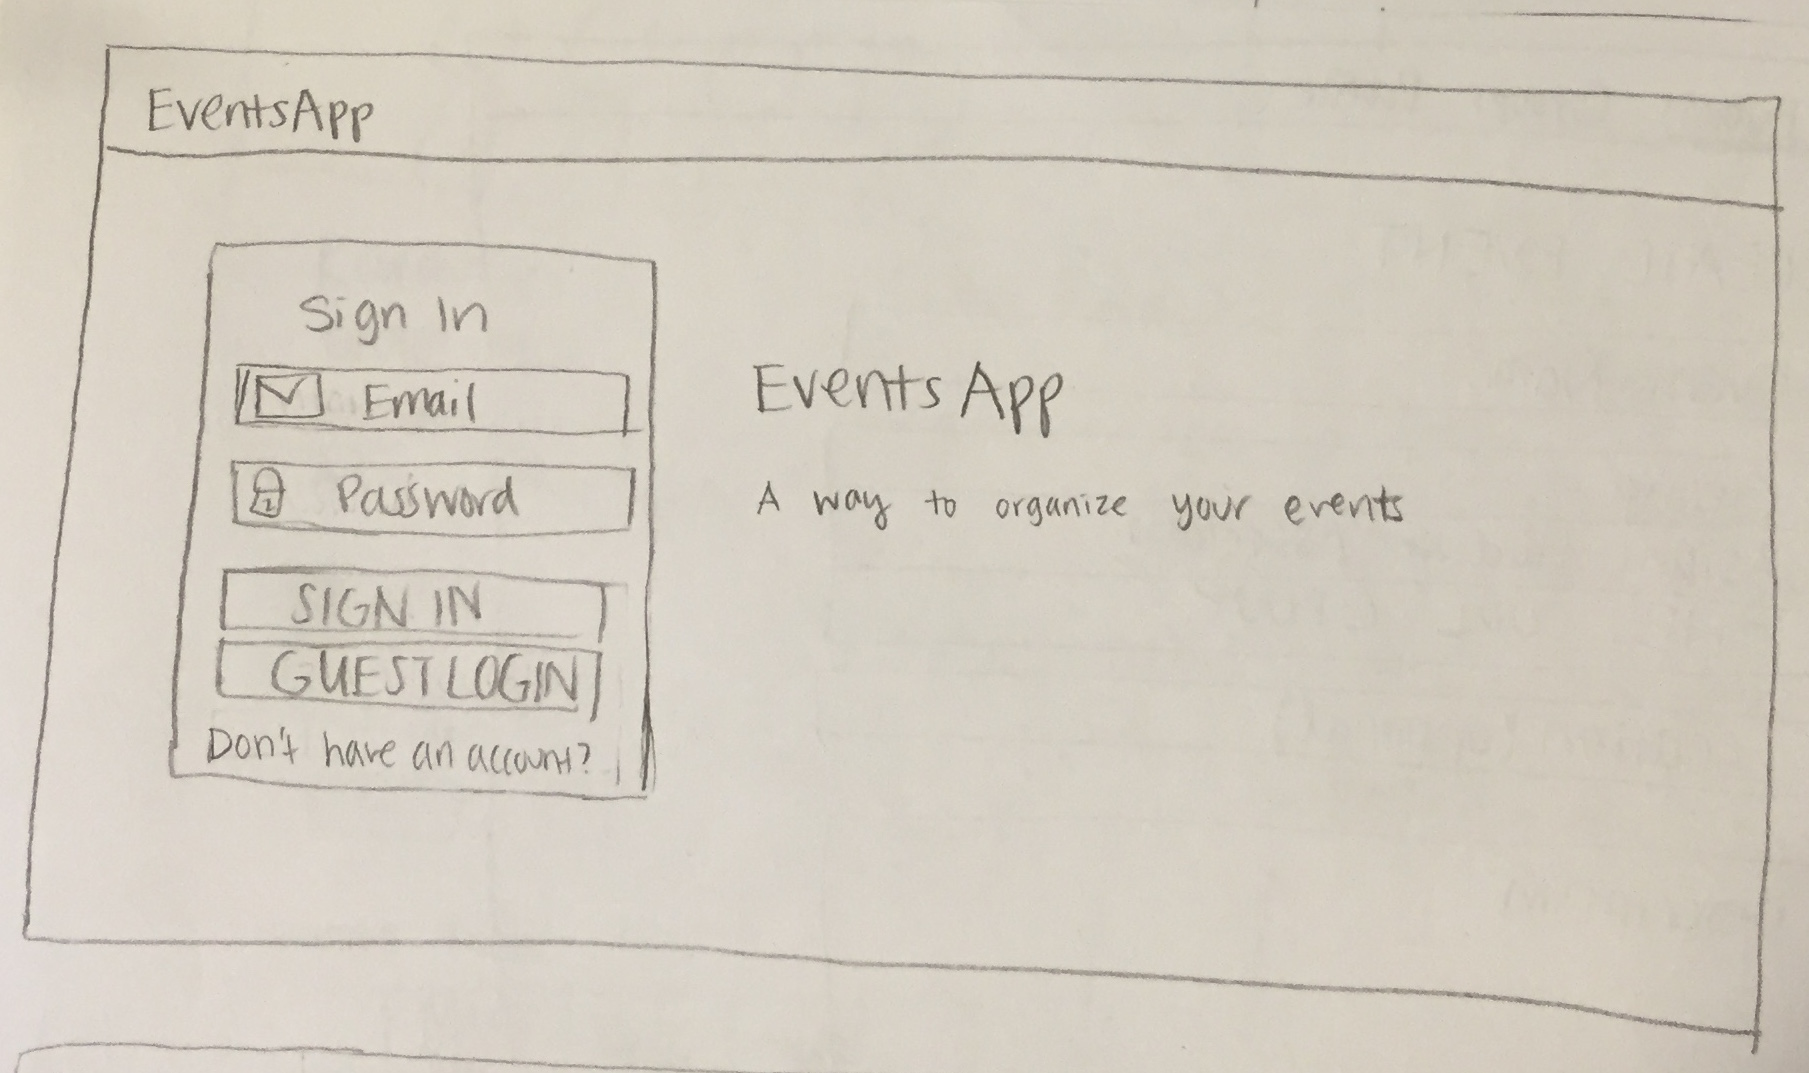 EventsApp
Sign In
Email
Password
SIGN IN
GUEST LOGIN
Don't have an account?
Events App
A way to organize your events